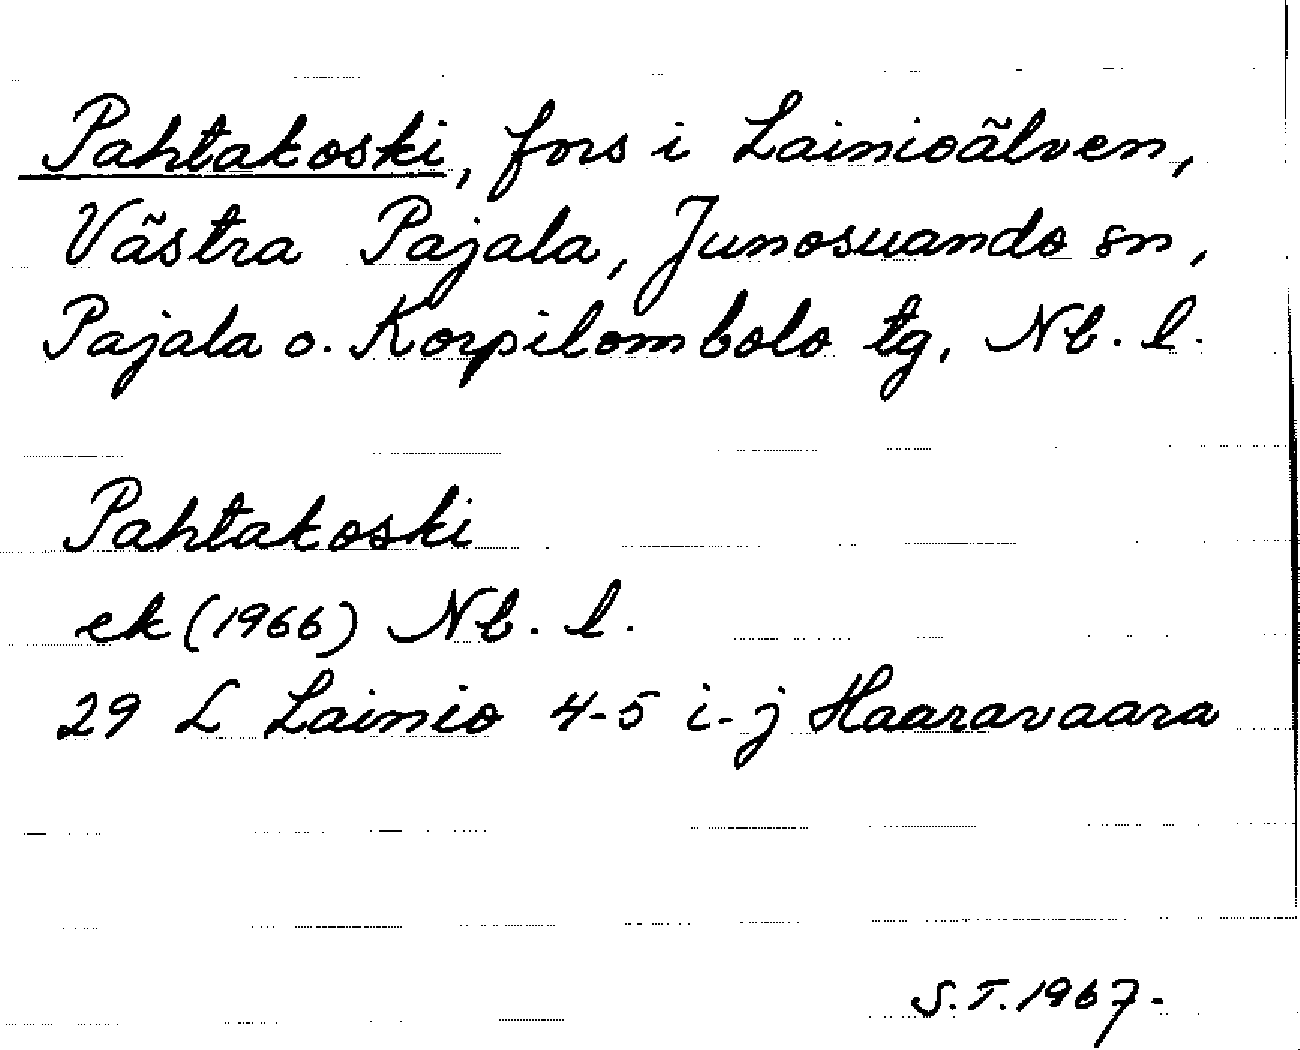 Pahtakoski, fors i Lainioälven,
Västra Pajala, Junosuando sn,
Pajala o. Korpilombolo tg, Nb. l.
Pahtakoski
ek (1966) Nb. l.
29 L Lainio 4-5 i-j Haaravaara
S.T. 1967.